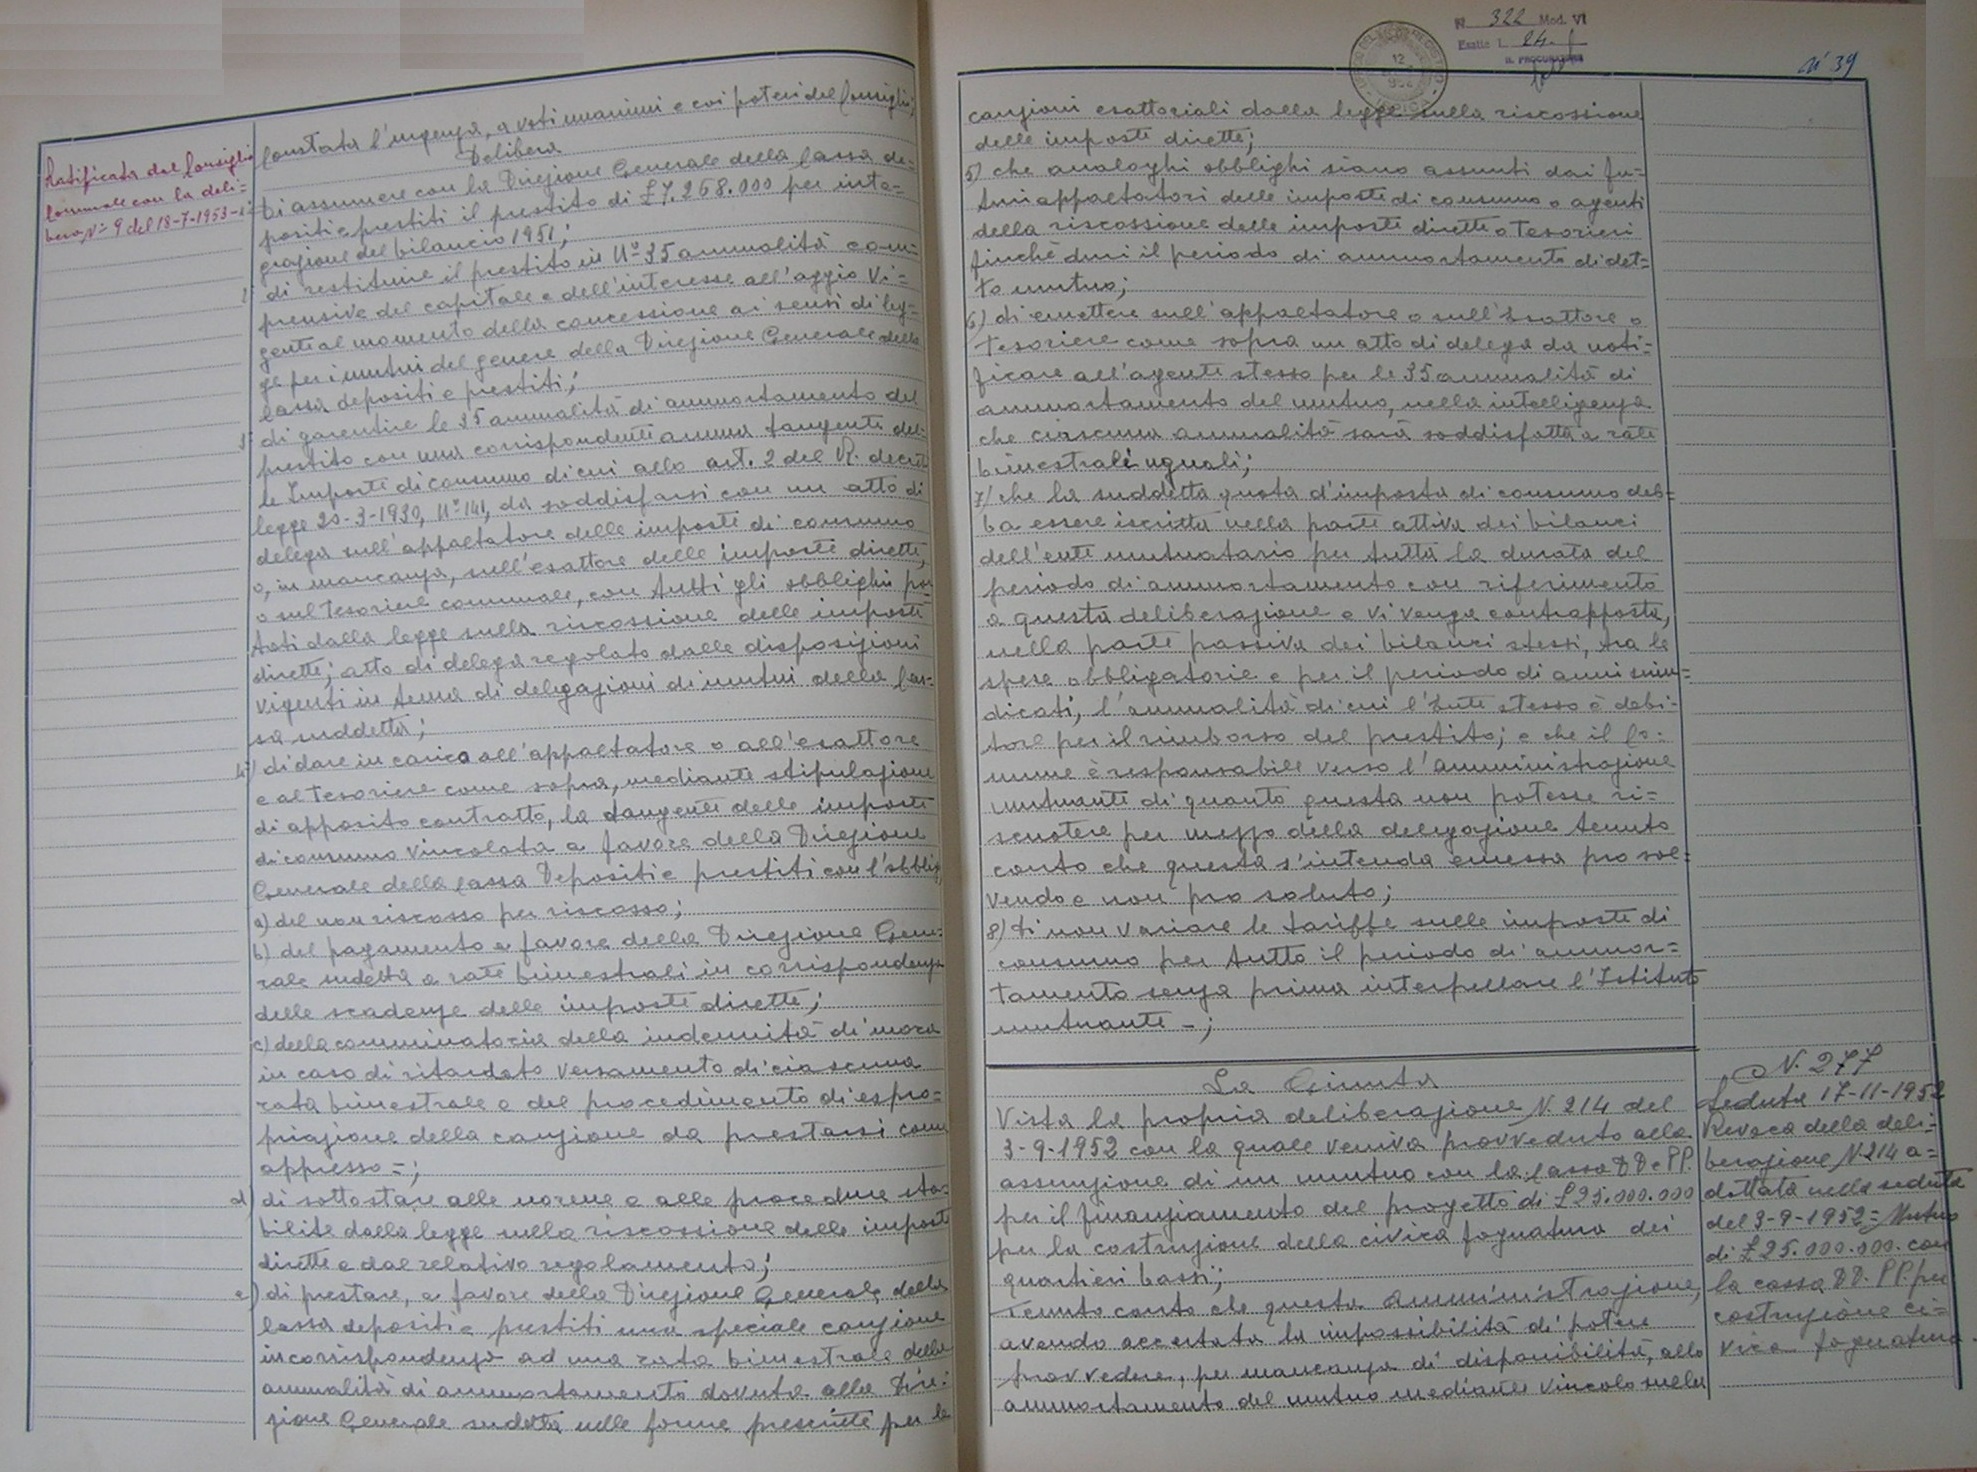 Ratificata dal Consiglio
Comunale con la deli-
bera N° 9 del 18-7-1953
Constata l'urgenza, a voti unanimi e coi poteri del Consiglio;
Delibera
Di assumere con la Direzione Generale della Cassa de-
positi e prestiti il prestito di £ 7.268.000 per inte-
grazione del bilancio 1951;
2° di restituire il prestito in N° 35 annualità com-
prensive del capitale e dell'interesse all'aggio vi-
gente al momento della concessione ai sensi di leg-
ge per i mutui del genere della Direzione Generale della
Cassa depositi e prestiti;
3° di garentire le 35 annualità di ammortamento del
prestito con una corrispondente annua tangente del-
le Imposte di consumo di cui allo art. 2 del R. decreto
legge 20-3-1930, N° 141, da soddisfarsi con un atto di
delega sull'appaltatore delle imposte di consumo
o, in mancanza, sull'esattore delle imposte dirette,
o sul tesoriere comunale, con tutti gli obblighi por-
tati dalla legge sulla riscossione delle imposte
dirette; atto di delega regolato dalle disposizioni
vigenti in tema di delegazioni di mutui della Cas-
sa suddetta;
4°) di dare in carico all'appaltatore o all'esattore
e al tesoriere come sopra, mediante stipulazione
di apposito contratto, la tangente delle imposte
di consumo vincolata a favore della Direzione
Generale della Cassa Depositi e prestiti con l'obbligo
a) del non riscosso per riscosso;
b) del pagamento a favore della Direzione Gene-
rale sudetta a rate bimestrali in corrispondenza
delle scadenze delle imposte dirette;
c) della comminatoria della indennità di mora
in caso di ritardato versamento di ciascuna
rata bimestrale e del procedimento di espro-
priazione della cauzione da prestarsi come
appresso=;
d) di sottostare alle norme e alle procedure sta-
bilite dalla legge sulla riscossione delle imposte
dirette e dal relativo regolamento;
e) di prestare, a favore della Direzione Generale della
Cassa depositi e prestiti una speciale cauzione
in corrispondenza ad una rata bimestrale della
annualità di ammortamento dovuta alla Dire-
zione Generale sudetta nelle forme prescritte per le
N. 322 Mod. VI
Esatte L. 24.
IL PROCURATORE
12
N° 39
cauzioni esattoriali dalla legge sulla riscossione
delle imposte dirette;
5) che analoghi obblighi siano assunti dai fu=
turi appaltatori delle imposte di consumo o agenti
della riscossione delle imposte dirette o tesorieri
finchè duri il periodo di ammortamento di det=
to mutuo;
6) di emettere sull'appaltatore o sull'Esattore o
tesoriere come sopra un atto di delega da noti=
ficare all'agente stesso per le 35 annualità di
ammortamento del mutuo, nella intelligenza
che ciascuna annualità sarà soddisfatta a rate
bimestrali uguali;
7) che la suddetta quota d'imposta di consumo deb=
ba essere iscritta nella parte attiva dei bilanci
dell'ente mutuatario per tutta la durata del
periodo di ammortamento con riferimento
a questa deliberazione e vi venga contrapposta,
nella parte passiva dei bilanci stessi, tra le
spese obbligatorie e per il periodo di anni sum=
dicati, l'annualità di cui l'Ente stesso è debi-
tore per il rimborso del prestito; e che il Co-
mune è responsabile verso l'amministrazione
mutuante di quanto questa non potesse ri=
scuotere per mezzo della delegazione tenuto
conto che questa s'intenda emessa pro sol=
vendo e non pro soluto;
8) di non variare le tariffe sulle imposte di
consumo per tutto il periodo di ammor=
tamento senza prima interpellare l'Istituto
mutuante -;
La Giunta
Vista la propria deliberazione N. 214 del
3-9-1952 con la quale veniva provveduto alla
assunzione di un mutuo con la Cassa DD. e PP.
per il finanziamento del progetto di £ 25.000.000
per la costruzione della civica fognatura dei
quartieri bassi;
Tenuto conto che questa Amministrazione,
avendo accertata la impossibilità di potere
provvedere, per mancanza di disponibilità, allo
ammortamento del mutuo mediante vincolo sulla
N. 277
Seduta 17-11-1952
Revoca della deli=
berazione N. 214 a=
dottata nella seduta
del 3-9-1952= Mutuo
di £ 25.000.000. con
la cassa DD. PP. per
costruzione ci=
vica fognatura.